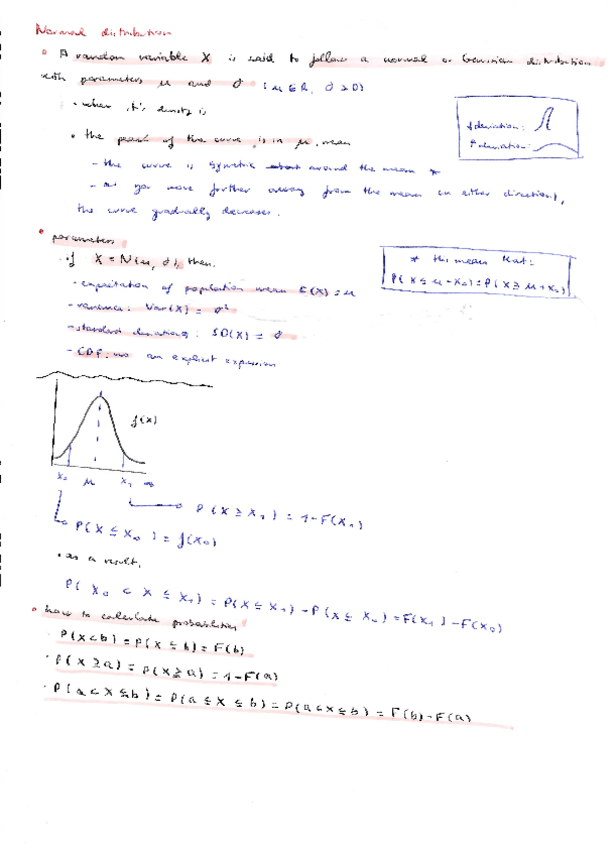 Normal distribution
A random variable X is said to follow a normal or Gaussian distribution
with parameters μ and σ (μ∈R, σ>0)
when it's density is
the peak of the curve is in μ, mean
- the curve is symetric around the mean *
- as you move further away from the mean in either direction,
the curve gradually decreases.
deviation:
deviation:
parameters
if X = N(μ, σ), then.
- expectation of population mean E(X) = μ
- variance: Var(X) = σ²
- standard deviation: SD(X) = σ
- CDF: no an explicit expression
* this mean that:
P(X ≤ μ - x₀) = P(X ≥ μ + x₀)
f(x)
x₀ μ x₁ ∞
P(X ≥ x₁) = 1 - F(x₁)
P(X ≤ x₀) = f(x₀)
as a result,
P(x₀ < X ≤ x₁) = P(X ≤ x₁) - P(X ≤ x₀) = F(x₁) - F(x₀)
how to calculate probabilities
P(X<b) = P(X ≤ b) = F(b)
P(X ≥ a) = P(X ≥ a) = 1 - F(a)
P(a < X ≤ b) = P(a ≤ X ≤ b) = P(a < X ≤ b) = F(b) - F(a)